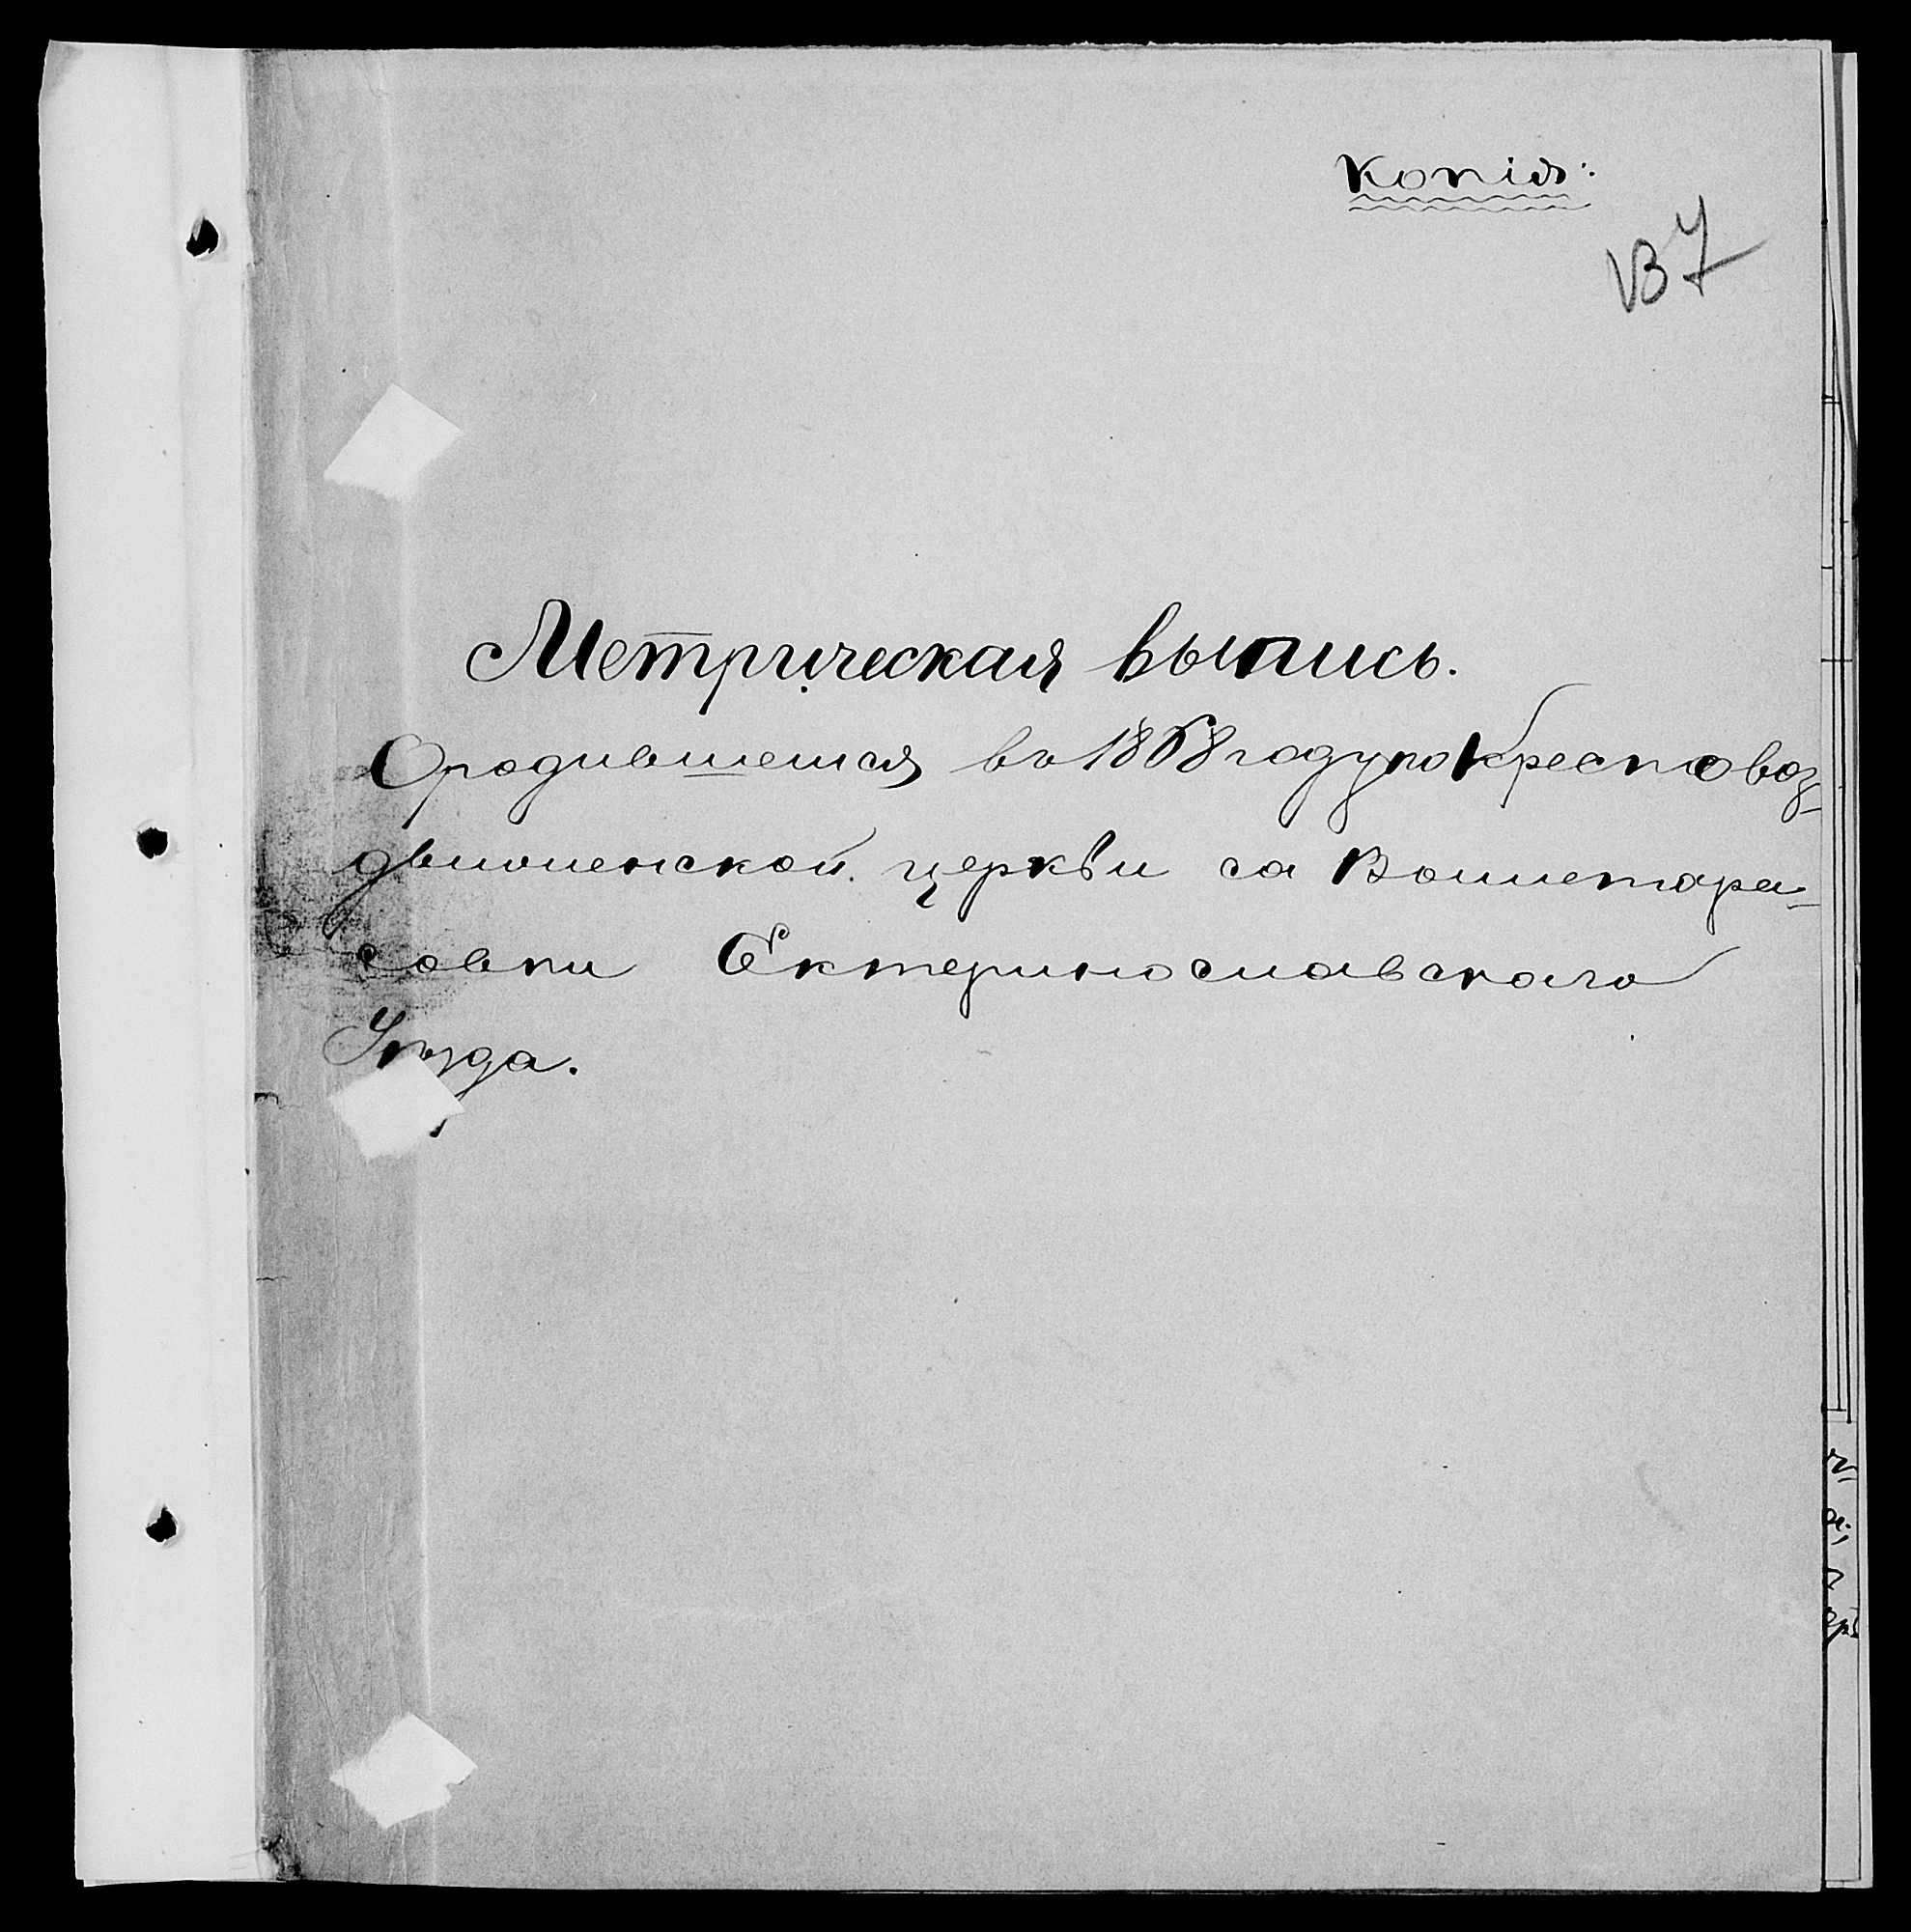 Копія:
VB 7
Метрическая выпись.
О родившемся въ 1868 году по Крестовоз-
движенской церкви са Волнетара-
совки Ектеринославскаго
Уѣзда.